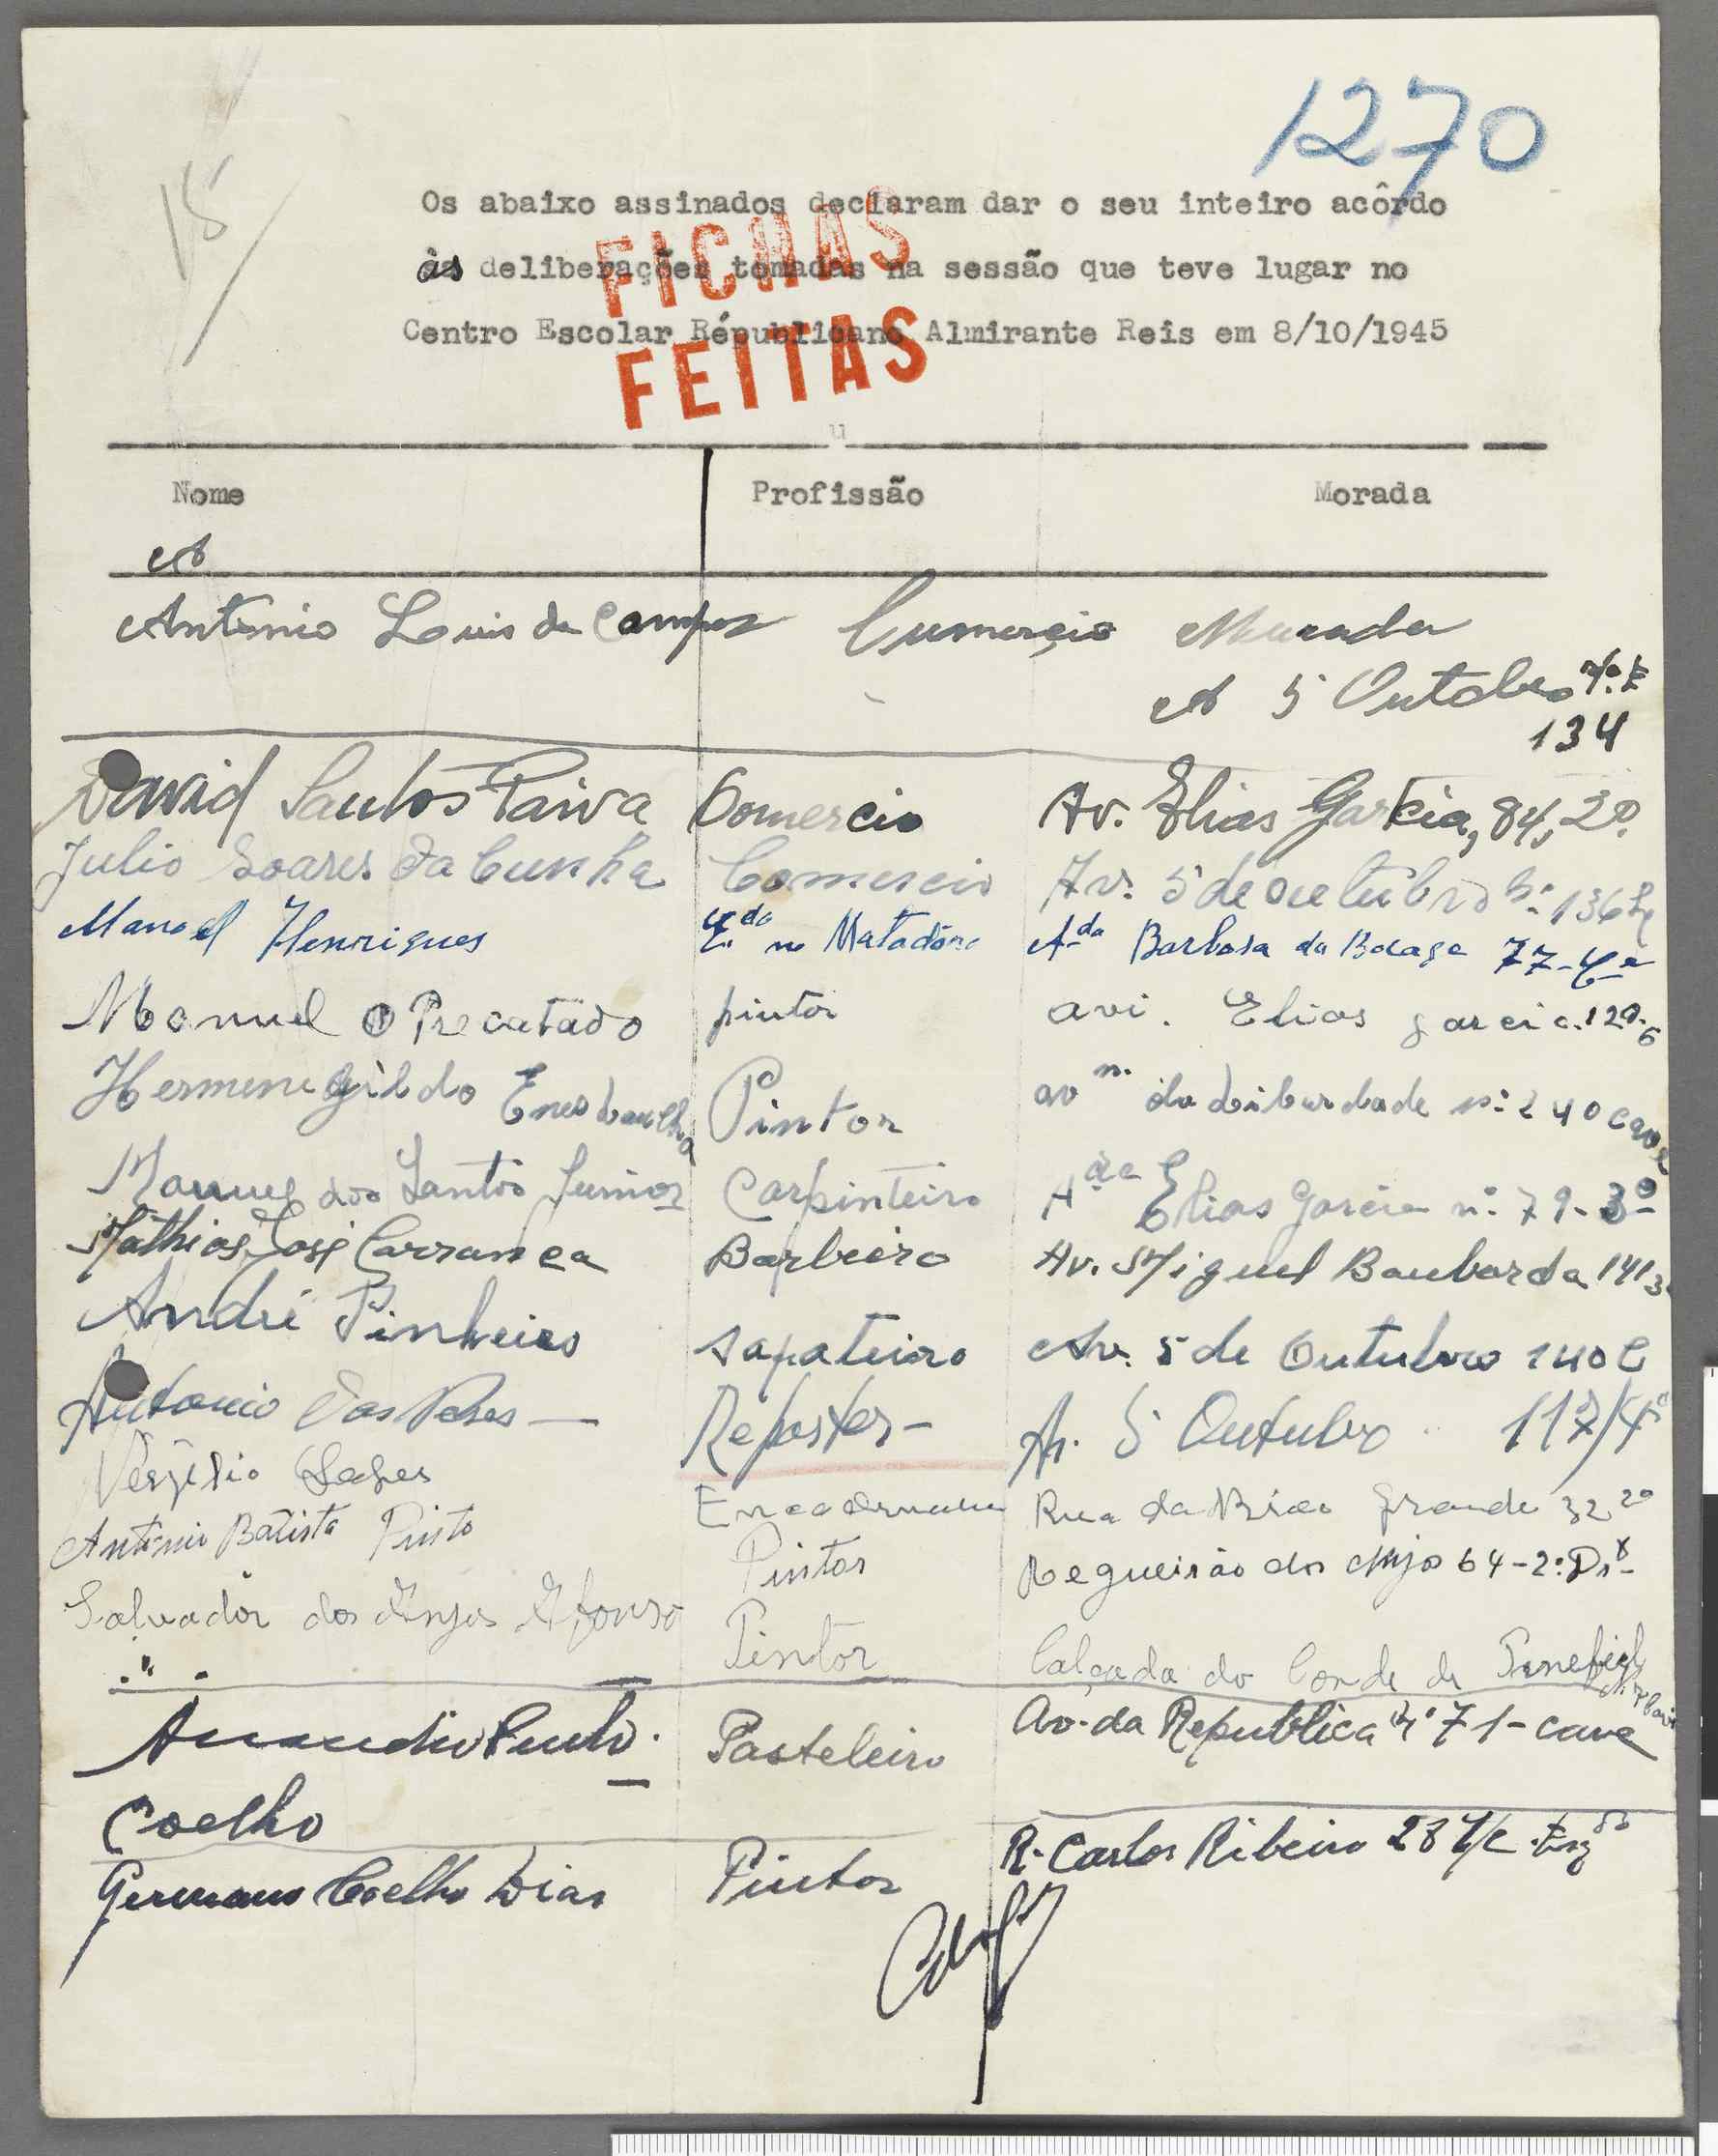 1270
15
Os abaixo assinados declaram dar o seu inteiro acôrdo
às deliberações tomadas na sessão que teve lugar no
Centro Escolar Républicano Almirante Reis em 8/10/1945
FICHAS
FEITAS
u
Nome Profissão Morada
A
Antonio Louis de Campos Cumerçio Murada
A 5 Outobro
134
David Santos Paiva Comercio Av. Elias Garcia, 84, 2º.
Julio Soares da Cunha Comercio Av. 5 de Outubro 136
Manoel Henriques no Matadôro Barbosa du Bocage 77-
Manuel O Precatado pintor avi. Elias garcia. 120.
Hermenegildo Pintor da Liberdade nº 240 cave
Manuel dos Santos Junior Carpinteiro Elias Garcia nº 79-3º
Mathias José Carranca Barbeiro Av. Miguel Bombarda 141
André Pinheiro sapateiro Av. 5 de Outubro 140 C
Antonio das Neves — Reporter - Av. 5 Outubro 117/4º
Vergilio Lages Rua da grande 32 2º
Antonio Batista Pinto Pintor Regueirão dos Anjos 64-2º. Dtº
Salvador dos Anjos Afonso Pintor Calçada do Conde de Penafiel
Pasteleiro Av. da Republica nº 71-cave
Coelho
Germano Coelho Dias Pintor R. Carlos Ribeiro 28 r/c Esqdo